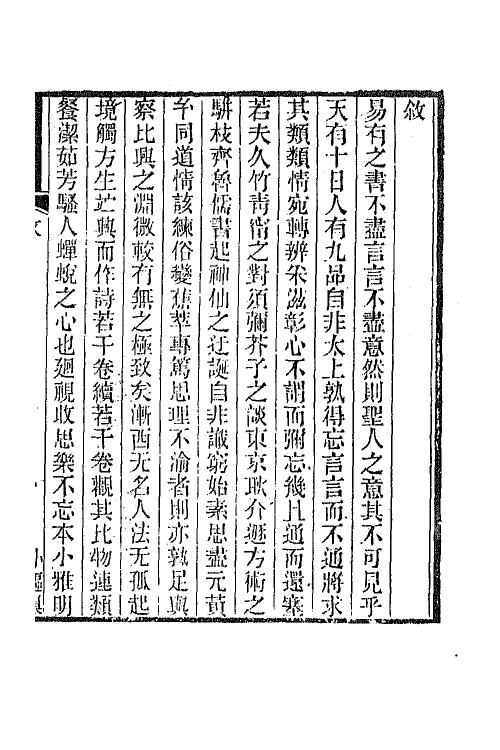 敘
易有之書不盡言言不盡意然則聖人之意其不可見乎
天有十日人有九品自非太上孰得忘言言而不通將求
其類類情宛轉辨采滋彰心不謂而彌忘幾且通而還塞
若夫久竹靑甯之對須彌芥子之談東京耿介遯方術之
駢枝齊魯儒書起神仙之迂誕自非識窮始素思盡元黃
午同道情該練俗變蕉萃專篤思理不渝者則亦孰足與
察比興之淵微較有無之極致矣漸西无名人法无孤起
境觸方生竝興而作詩若干卷續若干卷觀其比物連類
餐潔茹芳騷人蟬蛻之心也廻視收思樂不忘本小雅明